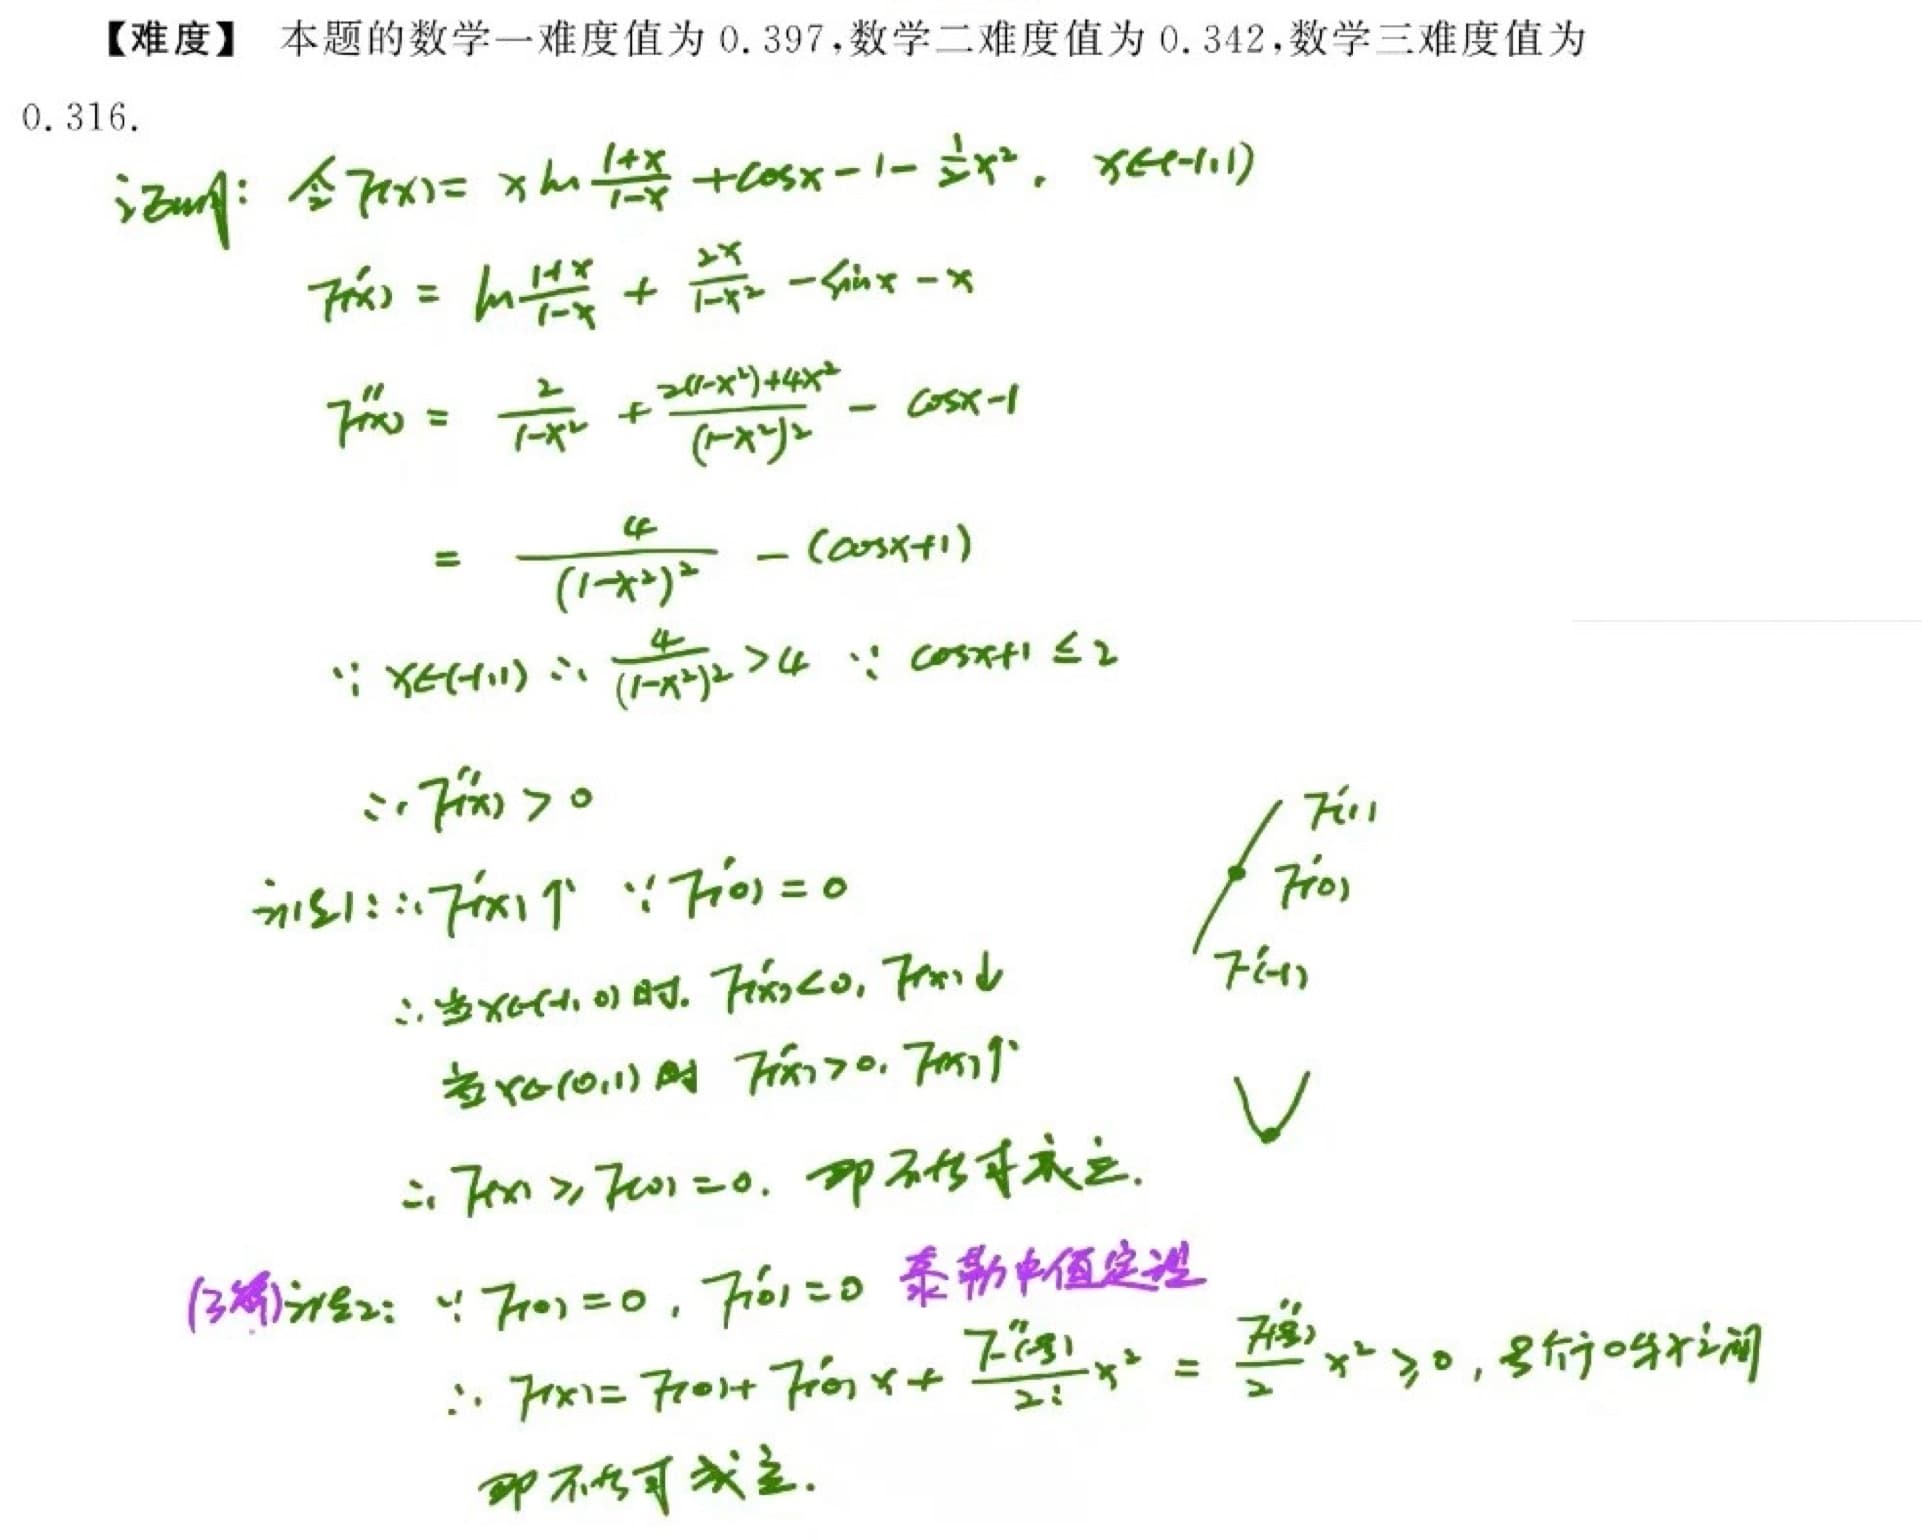 【难度】 本题的数学一难度值为 0.397,数学二难度值为 0.342,数学三难度值为
0.316.
证明: 令 F(x) = x ln (1+x)/(1-x) + cosx - 1 - 1/2 x², x∈(-1,1)
F'(x) = ln (1+x)/(1-x) + 2x/(1-x²) - sinx - x
F''(x) = 2/(1-x²) + (2(1-x²)+4x²)/(1-x²)² - cosx - 1
= 4/(1-x²)² - (cosx+1)
∵ x∈(-1,1) ∴ 4/(1-x²)² > 4 ∵ cosx+1 ≤ 2
∴ F''(x) > 0
F'(1)
法1: ∴ F'(x)↑ ∵ F'(0) = 0
F'(0)
∴ 当x∈(-1,0)时. F'(x)<0, F(x)↓
F'(-1)
当x∈(0,1)时 F'(x)>0, F(x)↑
∴ F(x) ≥ F(0) = 0. 即不等式成立.
(了解)法2: ∵ F(0) = 0, F'(0) = 0 泰勒中值定理
∴ F(x) = F(0) + F'(0)x + F''(ξ)/2! x² = F''(ξ)/2 x² ≥ 0, ξ介于0与x之间
即不等式成立.